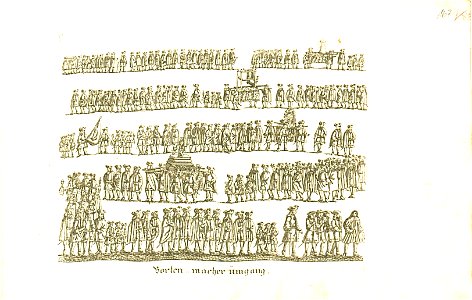 Borten macher umgang.